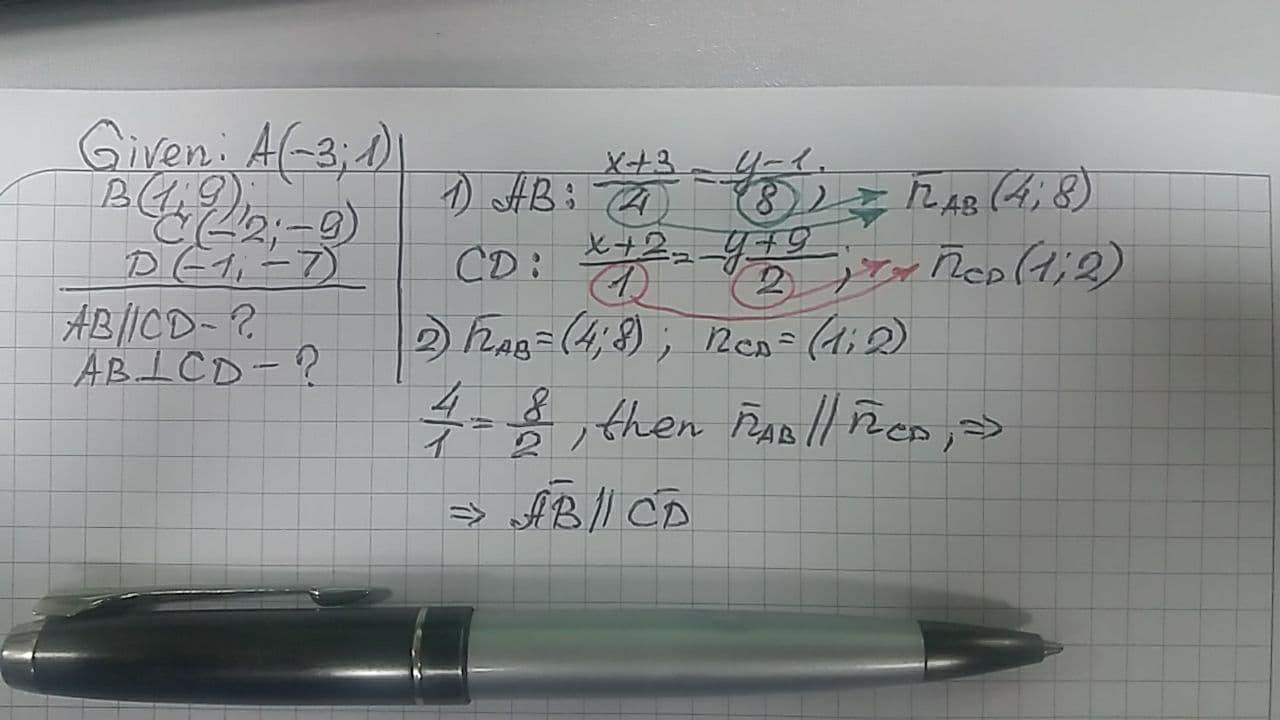 Given: A(-3; 1)
B(1; 9);
C(-2; -9)
D(-1; -7)
AB // CD - ?
AB ⊥ CD - ?
1) AB: (x+3)/4 = (y-1)/8; n̄AB (4; 8)
CD: (x+2)/1 = (y+9)/2; n̄CD (1; 2)
2) n̄AB = (4; 8); nCD = (1; 2)
4/1 = 8/2, then n̄AB // n̄CD, ⇒
⇒ AB̄ // CD̄